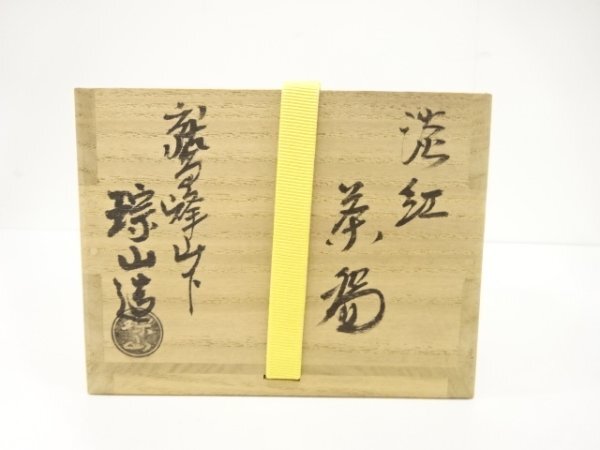 淡紅
茶碗
鷲峰山下
琮山造